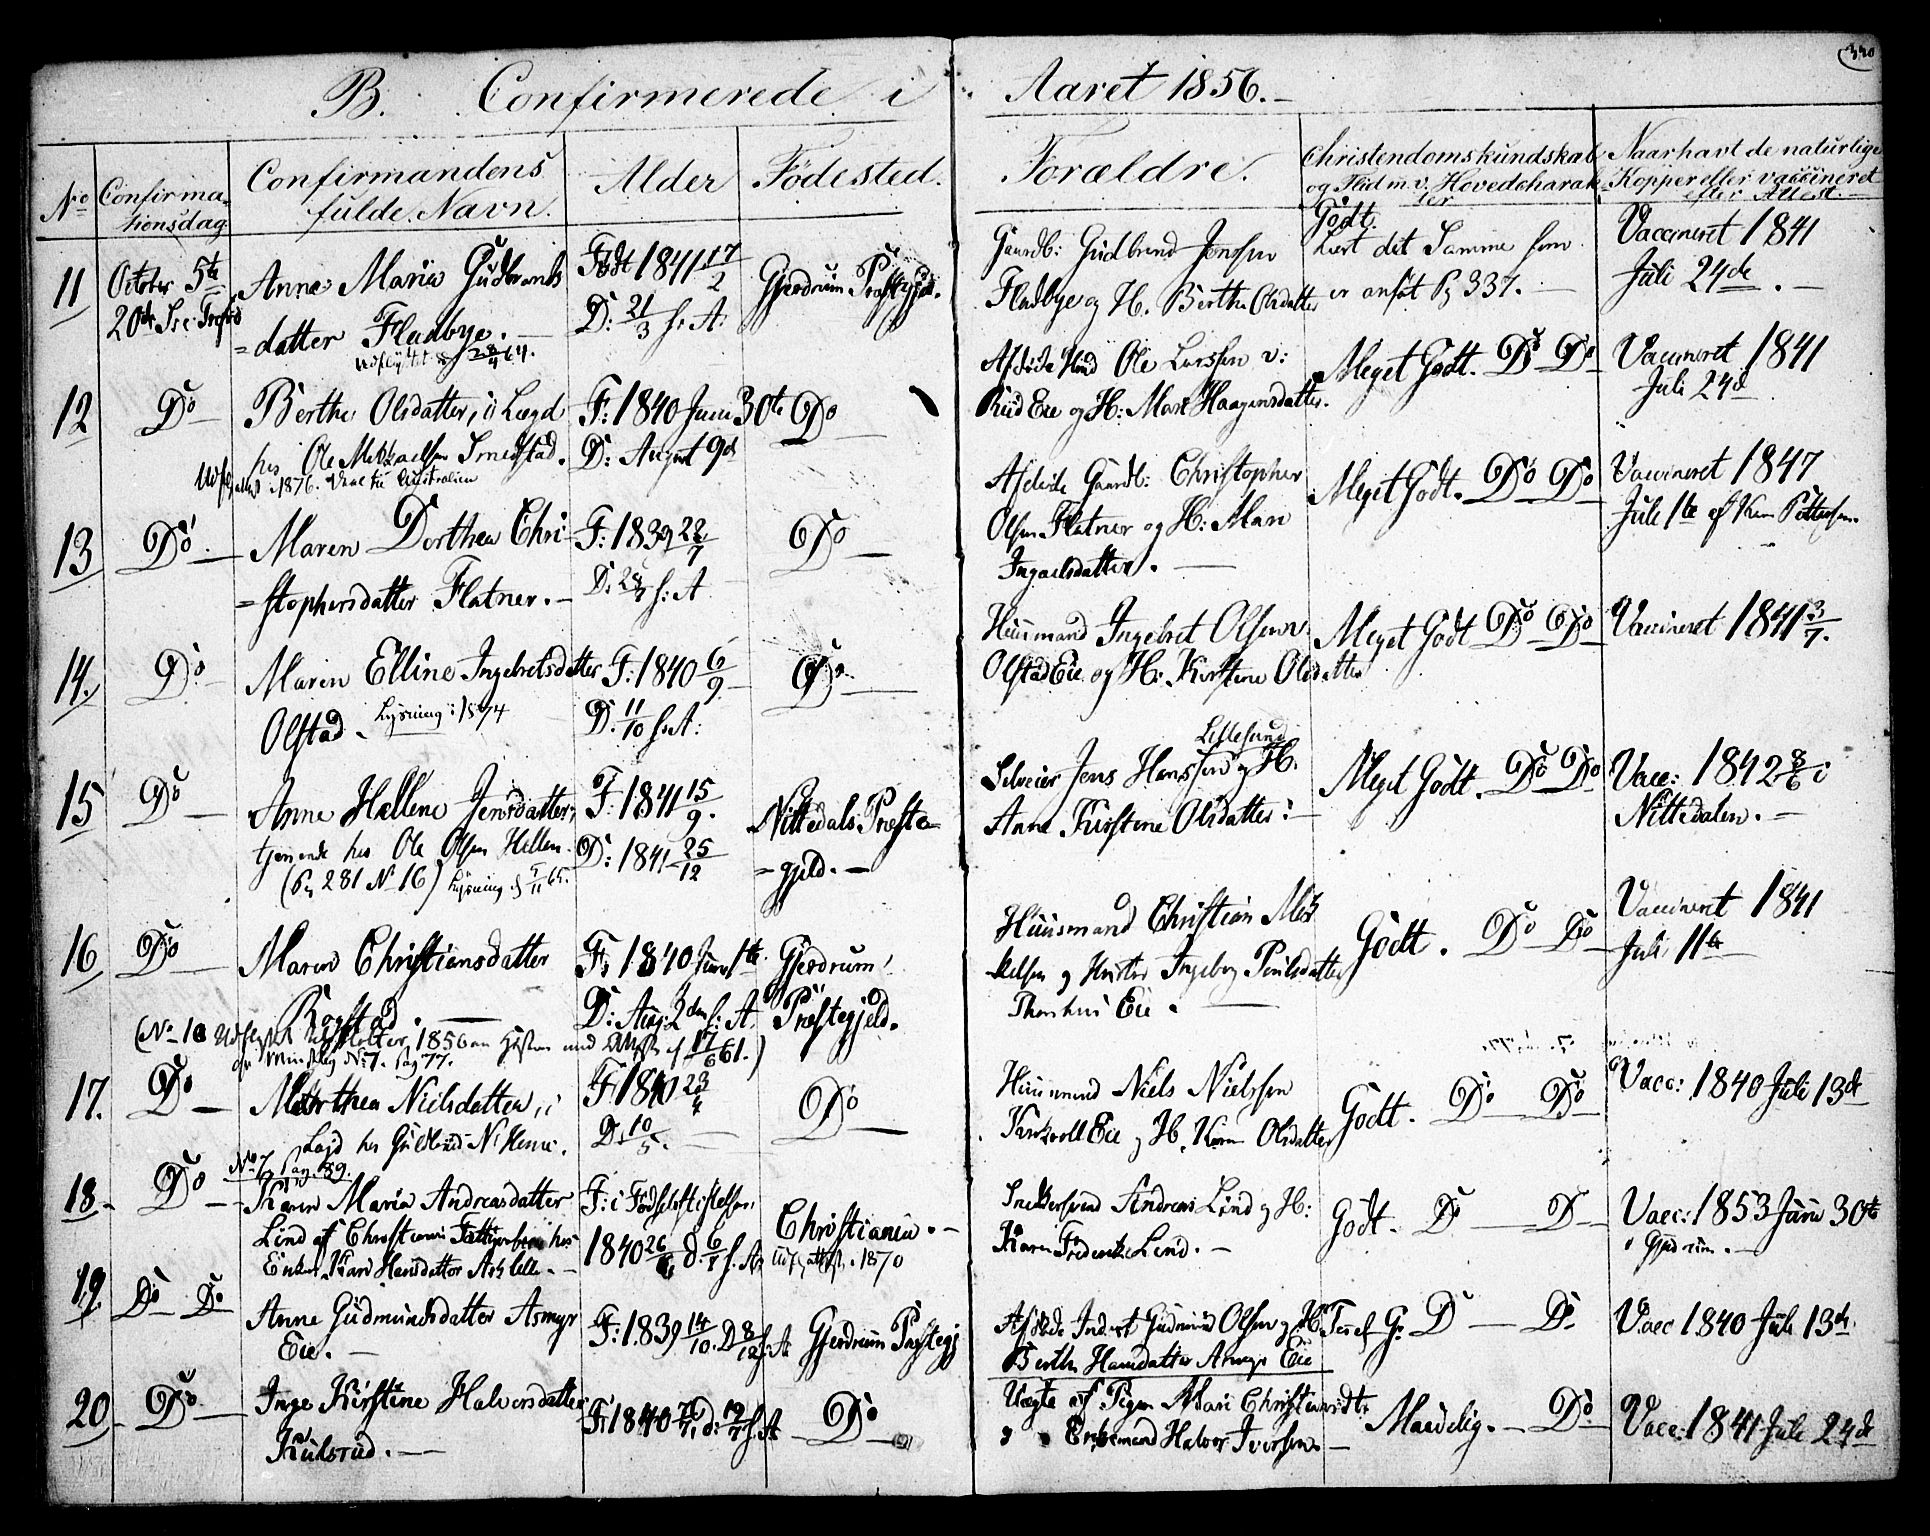 340
B. Confirmerede i Aaret 1856.
No
Confirma-
tionsdag
Confirmandens
fulde Navn.
Alder
Födested.
Forældre.
Christendomskundskab
og Flid m. v. Hovedcharak-
ter
Naar havt de naturlige
Kopper eller vaccineret
efter Attest.
11
October 5te
20de
Anne Maria Gudbrands
=datter Fladbye.
Udflyttet 64.
Födt 1841 17/2
D: 21/3 s: A:
Gjerdrum Præstegjeld.
Gaardb: Gudbrand Jensen
Fladbye og H. Berthe Olsdatter
Godt.
Læst det Samme som
er anföt Pg 337.
Vaccineret 1841
Juli 24de.
12
Do
Berthe Olsdatter, i Lægd
hos Ole Mikkaelsen Smedstad.
1876. Australien
F: 1840 Juni 30te
D: August 9de
Do
Afdöde Ole Larssen v:
Ruud Eie og H: Mari Haagensdatter.
Meget Godt. Do Do
Vaccineret 1841
Juli 24de
13
Do
Maren Dorthea Chri-
=stophersdatter Flatner.
F: 1839 22/7
D: s: A
Do
Afdöde Gaardb: Christopher
Olsen Flatner og H: Mari
Meget Godt. Do Do
Vaccineret 1847
Juli 1te af Pettersen.
14.
Do
Maren Elline Ingebretsdatter
Olstad. Lysning i 1874
F: 1840 6/9
D: 11/10 s: A:
Do
Huusmand Ingebret Olsen
Olstad Eie og H: Kirstine Olsdatter
Meget Godt Do Do
Vaccineret 1841 3/7.
15
Do
Anne Hellene Jensdatter,
tjenende hos Ole Olsen Hellen.
(Pg 281 No 16) Lysning 5/11 65.
F: 1841 15/9.
D: 1841 25/12
Nittedals Præste-
=gjeld.
Lillesund
Jens Hanssen og H.
Anne Kirstine Olsdatter
Meget Godt. Do Do
Vacc: 1842 i
Nittedalen.
16
Do
Maren Christiansdatter
Rogstad.
F: 1840 Juni 1te
D: Aug: 2den s: A.
Gjerdrum
Præstegjeld.
Huusmand Christian Mik-
kelsen og Hustru Ingeborg Poulsdatter
Eie.
Godt. Do Do
Vaccineret 1841
Juli 11te
1856 Hösten med Attest af 17/6 61.)
No 7. pag 77.
17.
Do
Marthea Nielsdatter, i
Lægd hos Gudbrand
F 1840 23/4
D. 10/5.
Do
Huusmand Niels Nielssen
Eie og H. Karen Olsdatter
Godt. Do Do
Vacc: 1840 Juli 13de
No 7. pag. 89.
18
Do
Karen Maria Andreasdatter
Lind af Christiania hos
Enken Kari Hansdatter
F: i Födselsstiftelsen
1840
Christiania.
Udfl. attest. 1870
Snedkersvend Andreas Lind og H:
Karen Lind.
Godt. Do Do
Vacc: 1853 Juni 30te
i Gjerdrum.
19
Do Do
Anne Gudmundsdatter Asmyr
Eie.
F: 1839 14/10. D 8/12 s: A
Gjerdrum Præstegj
Afdöde Inderst Gudmund Olsen og H.
Berthe Hansdatter Asmyr Eie
Do Do
Vacc 1840 Juli 13de
20
Do
Inge Kirstine Halvorsdatter
Kulsrud.
F: 1840
Do
Uægte af Pigen Mari Christiansdt.
og Enkemand Halvor Iversen.
Maadelig. Do
Vacc: 1841 Juli 24de